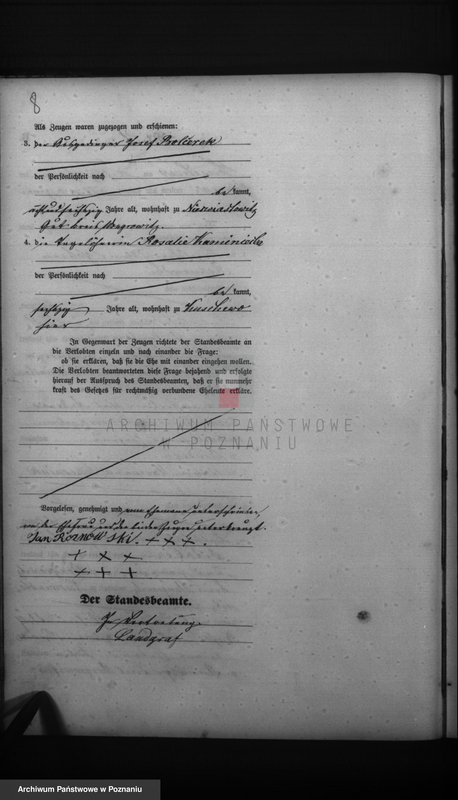 8
Als Zeugen waren zugezogen und erschienen:
3. der Ausgedinger Josef
der Persönlichkeit nach
bekannt,
Jahre alt, wohnhaft zu
Gut Kreis Wongrowitz.
4. die Tagelöhnerin Rosalie
der Persönlichkeit nach
bekannt,
sechszig Jahre alt, wohnhaft zu
hier
In Gegenwart der Zeugen richtete der Standesbeamte an
die Verlobten einzeln und nach einander die Frage:
ob sie erklären, daß sie die Ehe mit einander eingehen wollen.
Die Verlobten beantworteten diese Frage bejahend und erfolgte
hierauf der Ausspruch des Standesbeamten, daß er sie nunmehr
kraft des Gesetzes für rechtmäßig verbundene Eheleute erkläre.
ARCHIWUM PAŃSTWOWE
W POZNANIU
Vorgelesen, genehmigt und vom Ehemann unterschrieben,
von der Ehefrau und den beiden Zeugen unterkreuzt.
Jan + + +.
+ + +
+ + +
Der Standesbeamte.
In Vertretung
Landgraf
Archiwum Państwowe w Poznaniu